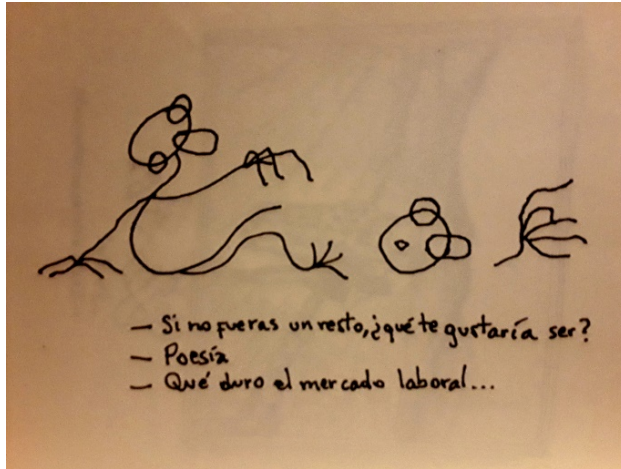 — Si no fueras un resto, ¿qué te gustaría ser?
— Poesía
— Qué duro el mercado laboral...